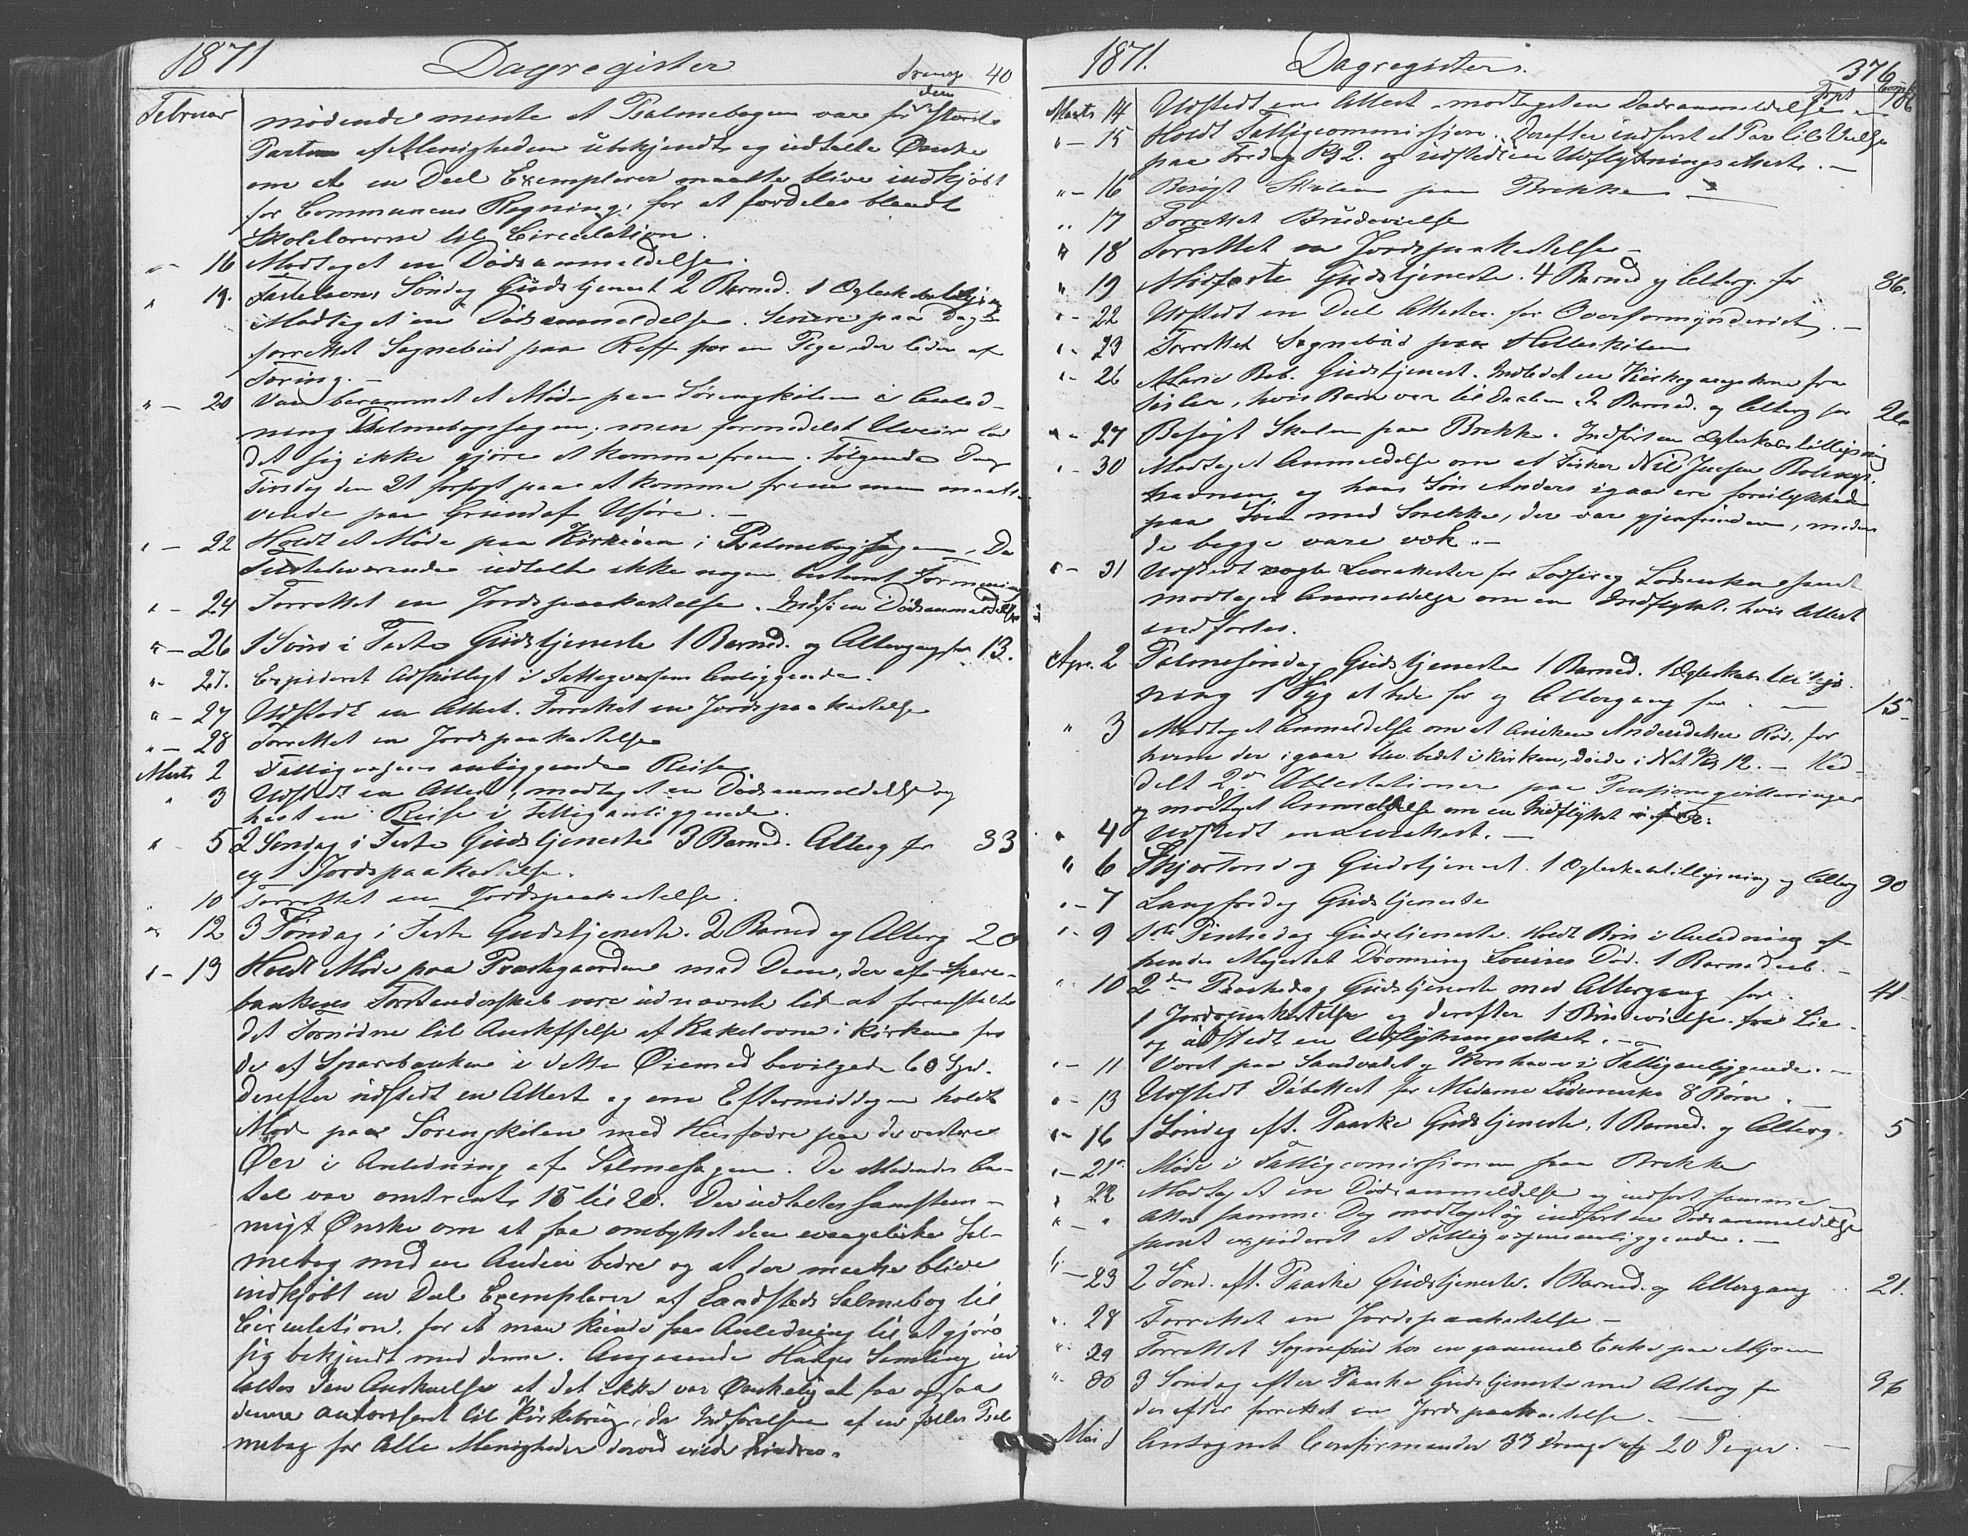 1871
Dagregister
Transp 40
Februar
mødende mente at Psalmebogen var for den største
Parten af Menigheden ubekjendt, og udtalte Ønske
om at en Deel Exemplarer maatte blive indkjøbt
for Communens Regning, for at fordeles blandt
Skolelærerne til Circulation.
" - 16 Modtaget en Dødsanmeldelse.
" 19. Fastelavns Søndag Gudstjenest 2 Barned. 1 Ægteskabslysning
Modtaget en Dødsanmeldelse. Senere paa Dagen
forrettet Sognebud paa Reff hos en Pige, der lider af
Tæring. -
" - 20 Var berammet et Møde paa Sørengkilen i Anled-
ning Psalmebogssagen, men formedelst Uveir lod
det sig ikke gjøre at komme frem. Følgende Dag
Tirsdag den 21 forsøgt paa at komme frem men maatte
vende paa Grund af Uføre. -
" - 22 Holdt et Møde paa Kirkeøen i Psalmebogssagen. De
Tilstedeværende udtalte ikke nogen bestemt Formening
" - 24 Forrettet en Jordspaakastelse. Indf. en Dødsanmeldelse
" - 26 1 Sønd i Faste Gudstjeneste 1 Barned. og Altergang for 13.
" - 27. Expideret Adskilligt i Fattigvæsens Anliggende.
" - 27 Udstedt en Attest. Forrettet en Jordspaakastelse
" - 28 Forrettet en Jordspaakastelse
Marts 2 Fattigvæsens anliggende Reise
" 3 Udstedt en Attest, modtaget en Dødsanmeldelse og
havt en Reise i Fattiganliggende.
" 5 2 Søndag i Faste Gudstjeneste 3 Barned. Alterg for 33
og 1 Jordspaakastelse.
" 10 Forrettet en Jordspaakastelse.
" 12 3 Søndag i Faste Gudstjeneste. 2 Barned og Alterg 20
" - 13 Holdt Møde paa Præstegaarden med Dem, der af Spare-
bankens Forstanderskab vare udnævnte til at foranstalte
det Fornødne til Anskaffelse af Kakelovne i Kirken for
de af Sparebanken i dette Øiemed bevilgede 60 Spd.
Derefter udstedt en Attest og om Eftermiddagen holdt
Møde paa Sørengkilen med Huusfædre paa de vestere
Øer i Anledning af Salmesagen. De Mødendes An-
tal var omtrent 15 til 20. Der udtaltes samstem-
migt Ønske om at faa ombyttet den evangeliske Sal-
mebog med en Anden bedre og at der maatte blive
indkjøbt en Deel Exemplarer af Landstads Salmebog til
Circulation, for at man kunde faa Anledning til at gjøre
sig bekjendt med denne. Angaaende Hauges Samling ud-
taltes den Anskuelse at det ikke var Ønskeligt at faa ogsaa
denne autoriseret til Kirkebrug, da Indførelsen af en fælles Psal
mebog for Alle Menigheder derved vilde hindres.
1871.
Dagregister.
376
Trpt 106
Marts 14 Udstedt en Attest - modtaget en Dødsanmeldelse -
" - 15 Holdt Fattigcommission. Derefter indført et Par til Vielse
paa Fredag Kl 2. og udstedt en Udflytningsattest. -
" - 16 Besøgt Skolen paa Brekke
" 17 Forrettet Brudevielse
" 18 Forrettet en Jordspaakastelse -
" 19 Midfaste Gudstjeneste. 4 Barned og Alterg. for 36.
" - 22 Udstedt en Deel Attester for Overformynderiet. -
" - 23 Forrettet Sognebud paa Holleskilen
" - 26 Marie Beb. Gudstjenest. Indledet en Kirkegangskone fra
hvis Barn var til Daaben 2 Barned. og Alterg for
" - 27 Besøgt Skolen paa Brekke. Indført en Ægteskabslysning
" - 30 Modtaget Anmeldelse om at Fisker Nils
havnen og hans Søn Anders igaar ere forulykkede
paa Søen med Snekke, der var gjenfunden, medens
de begge vare væk. -
" - 31 Udstedt nogle for samt
modtaget Anmeldelse om en Indflyttet hvis Attest
indførtes.
Apr. 2 Palmesøndag Gudstjeneste 1 Barned. 1 Ægteskabs tillys-
ning 1 Syg at bede for og Altergang for - 15
" 3 Modtaget Anmeldelse om at Andersdatter Rød, for
hvem der igaar blev bedet i Kirken, døde i Nat Kl 12. - Med-
delt 2de Attestationer paa Pensionsqvitteringer
og modtaget Anmeldelse om en Indflyttet
" 4 Udstedt en Attest. -
" 6 Skjærtorsdag Gudstjenest. 1 Ægteskabstillysning og Alterg 90
" - 7 Langfredag Gudstjeneste
" - 9 1ste Paaskedag Gudstjeneste. Holdt Bøn i Anledning af
hendes Majestæt Dronning Louises Død. 1 Barnedaab. -
" 10 2den Paaskedag Gudstjeneste med Altergang for 41
1 Jordspaakastelse og derefter 1 Brudevielse fra
og udstedt en Udflytningsattest. -
" - 11 Været paa og i Fattiganliggende. -
" - 13 Udstedt Døbattest for Madame 8 Børn. -
" - 16 1 Søndag eft. Paaske Gudstjeneste. 1 Barned. og Alterg. 5
" - 21 Møde i Fattigcommissionen paa Brekke
" 22 Modtaget en Dødsanmeldelse og indført samme
" - " Atter samme Dag modtaget og indført en Dødsanmeldelse
samt expideret et Fattigvæsensanliggende. -
" - 23 2 Sønd. eft. Paaske Gudstjeneste. 1 Barned. og Altergang 21.
" 28 Forrettet en Jordspaakastelse -
" 29 Forrettet Sognebud hos en gammel Enke paa
" 30 3 Søndag efter Paaske Gudstjeneste med Alterg for 36
derefter forrettet en Jordspaakastelse. -
Mai 1 Antegnet Confirmander 33 Drenge og 20 Piger. -